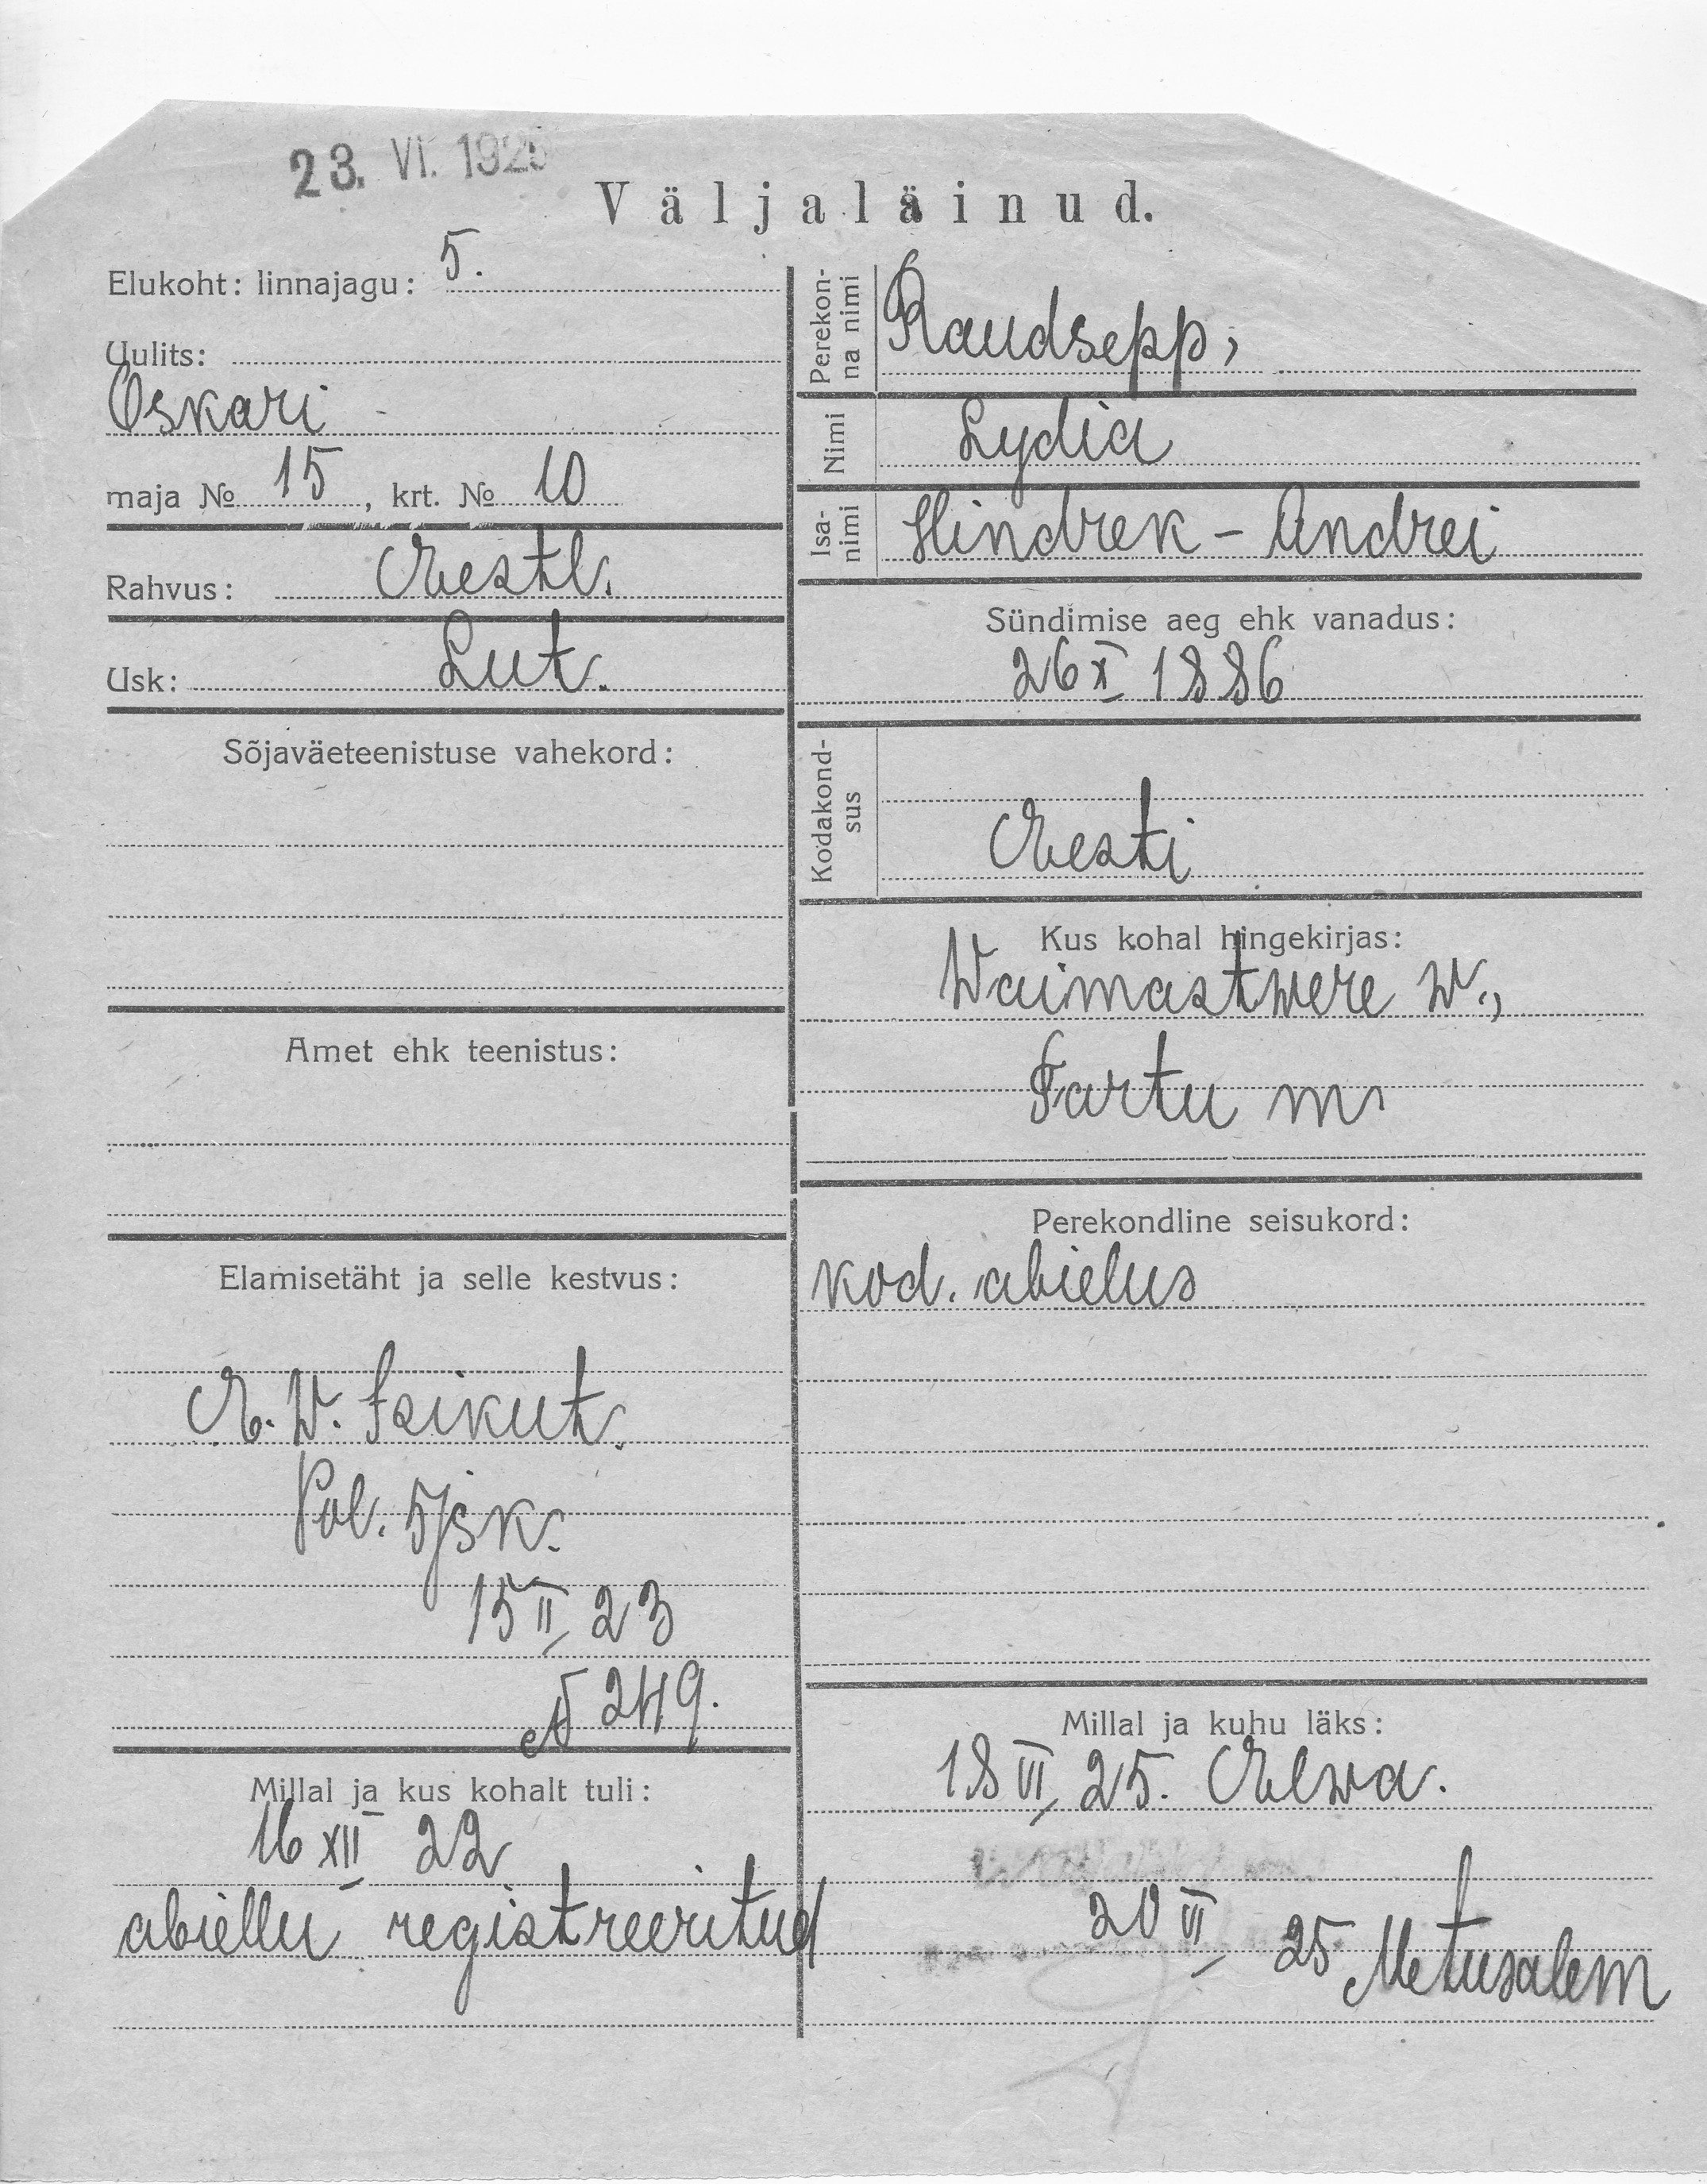 23. VI. 1925
Väljaläinud.
Elukoht: linnajagu: 5.
Uulits:
Oskari
maja № 15, krt. № 10
Rahvus: Eestl.
Usk: Lut.
Sõjaväeteenistuse vahekord:
Amet ehk teenistus:
Elamisetäht ja selle kestvus:
E. W. Isikut.
Pol. 5 jsk.
15 II 23
№ 249.
Millal ja kus kohalt tuli:
16 XII 22
abiellu registreeritud
Perekon-
na nimi
Raudsepp,
Nimi
Lydia
Isa-
nimi
Hindrek - Andrei
Sündimise aeg ehk vanadus:
26 X 1886
Kodakond-
sus
Eesti
Kus kohal hingekirjas:
Waimastwere w.,
Tartu m.
Perekondline seisukord:
kod. abielus
Millal ja kuhu läks:
18 VI 25. Elwa.
20 VI 25 Metusalem